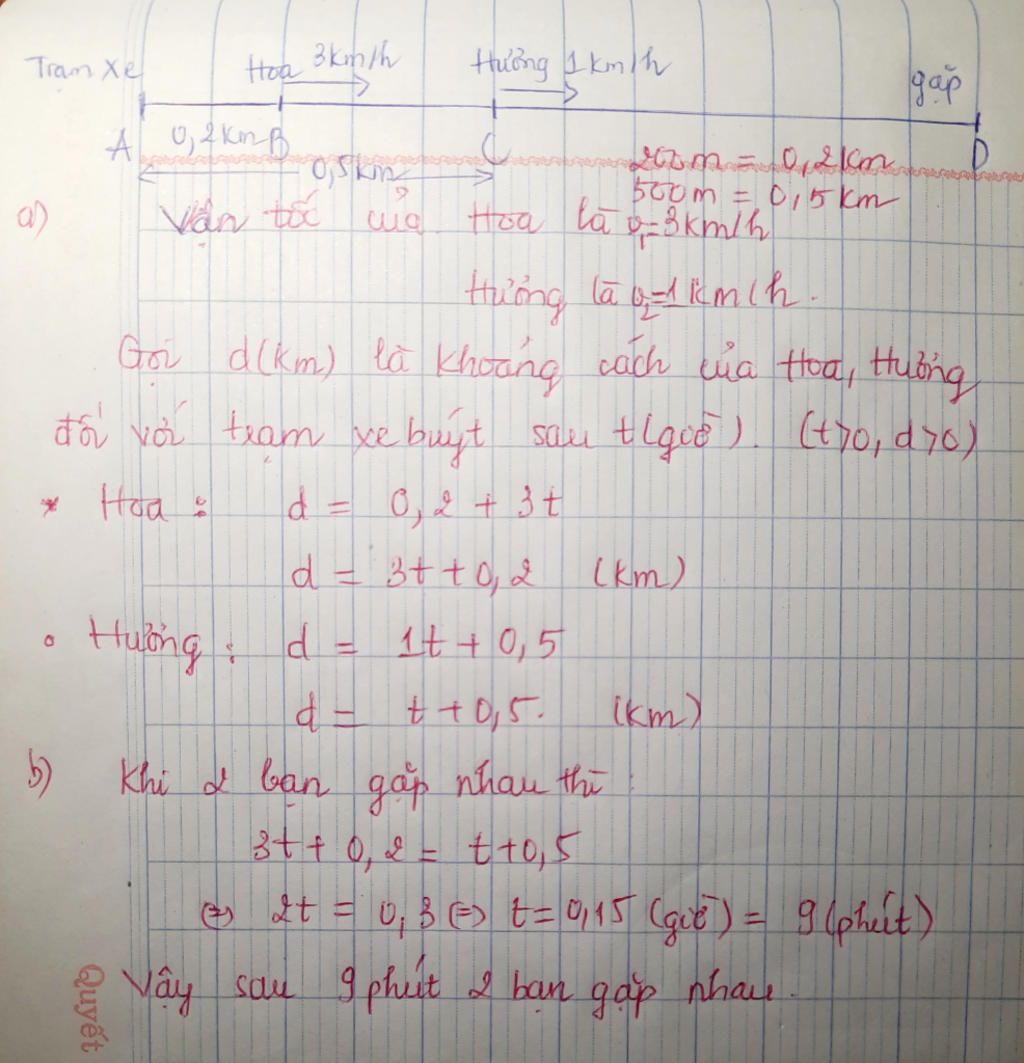 Trạm xe Hoa 3km/h Hưởng 1km/h gặp
A 0,2km B C D
0,5km 200m = 0,2km
500m = 0,5km
a) Vận tốc của Hoa là v₁=3km/h
Hưởng là v₂=1km/h.
Gọi d(km) là khoảng cách của Hoa, Hưởng
đối với trạm xe buýt sau t(giờ). (t>0, d>0)
* Hoa : d = 0,2 + 3t
d = 3t+0,2 (km)
• Hưởng : d = 1t + 0,5
d = t+0,5. (km)
b) Khi 2 bạn gặp nhau thì :
3t + 0,2 = t+0,5
⇔ 2t = 0,3 ⇔ t = 0,15 (giờ) = 9 (phút)
Vậy sau 9 phút 2 bạn gặp nhau.
Quyết